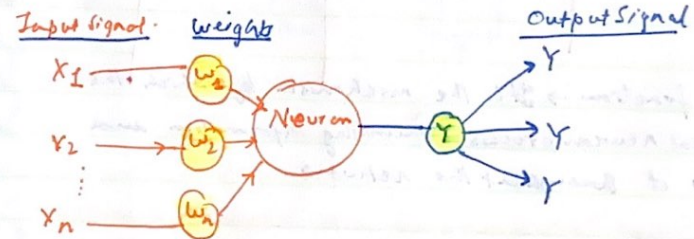 Input Signal. Weights Output Signal
X1 W1 Y
Neuron
X2 W2 Y Y
Xn Wn Y